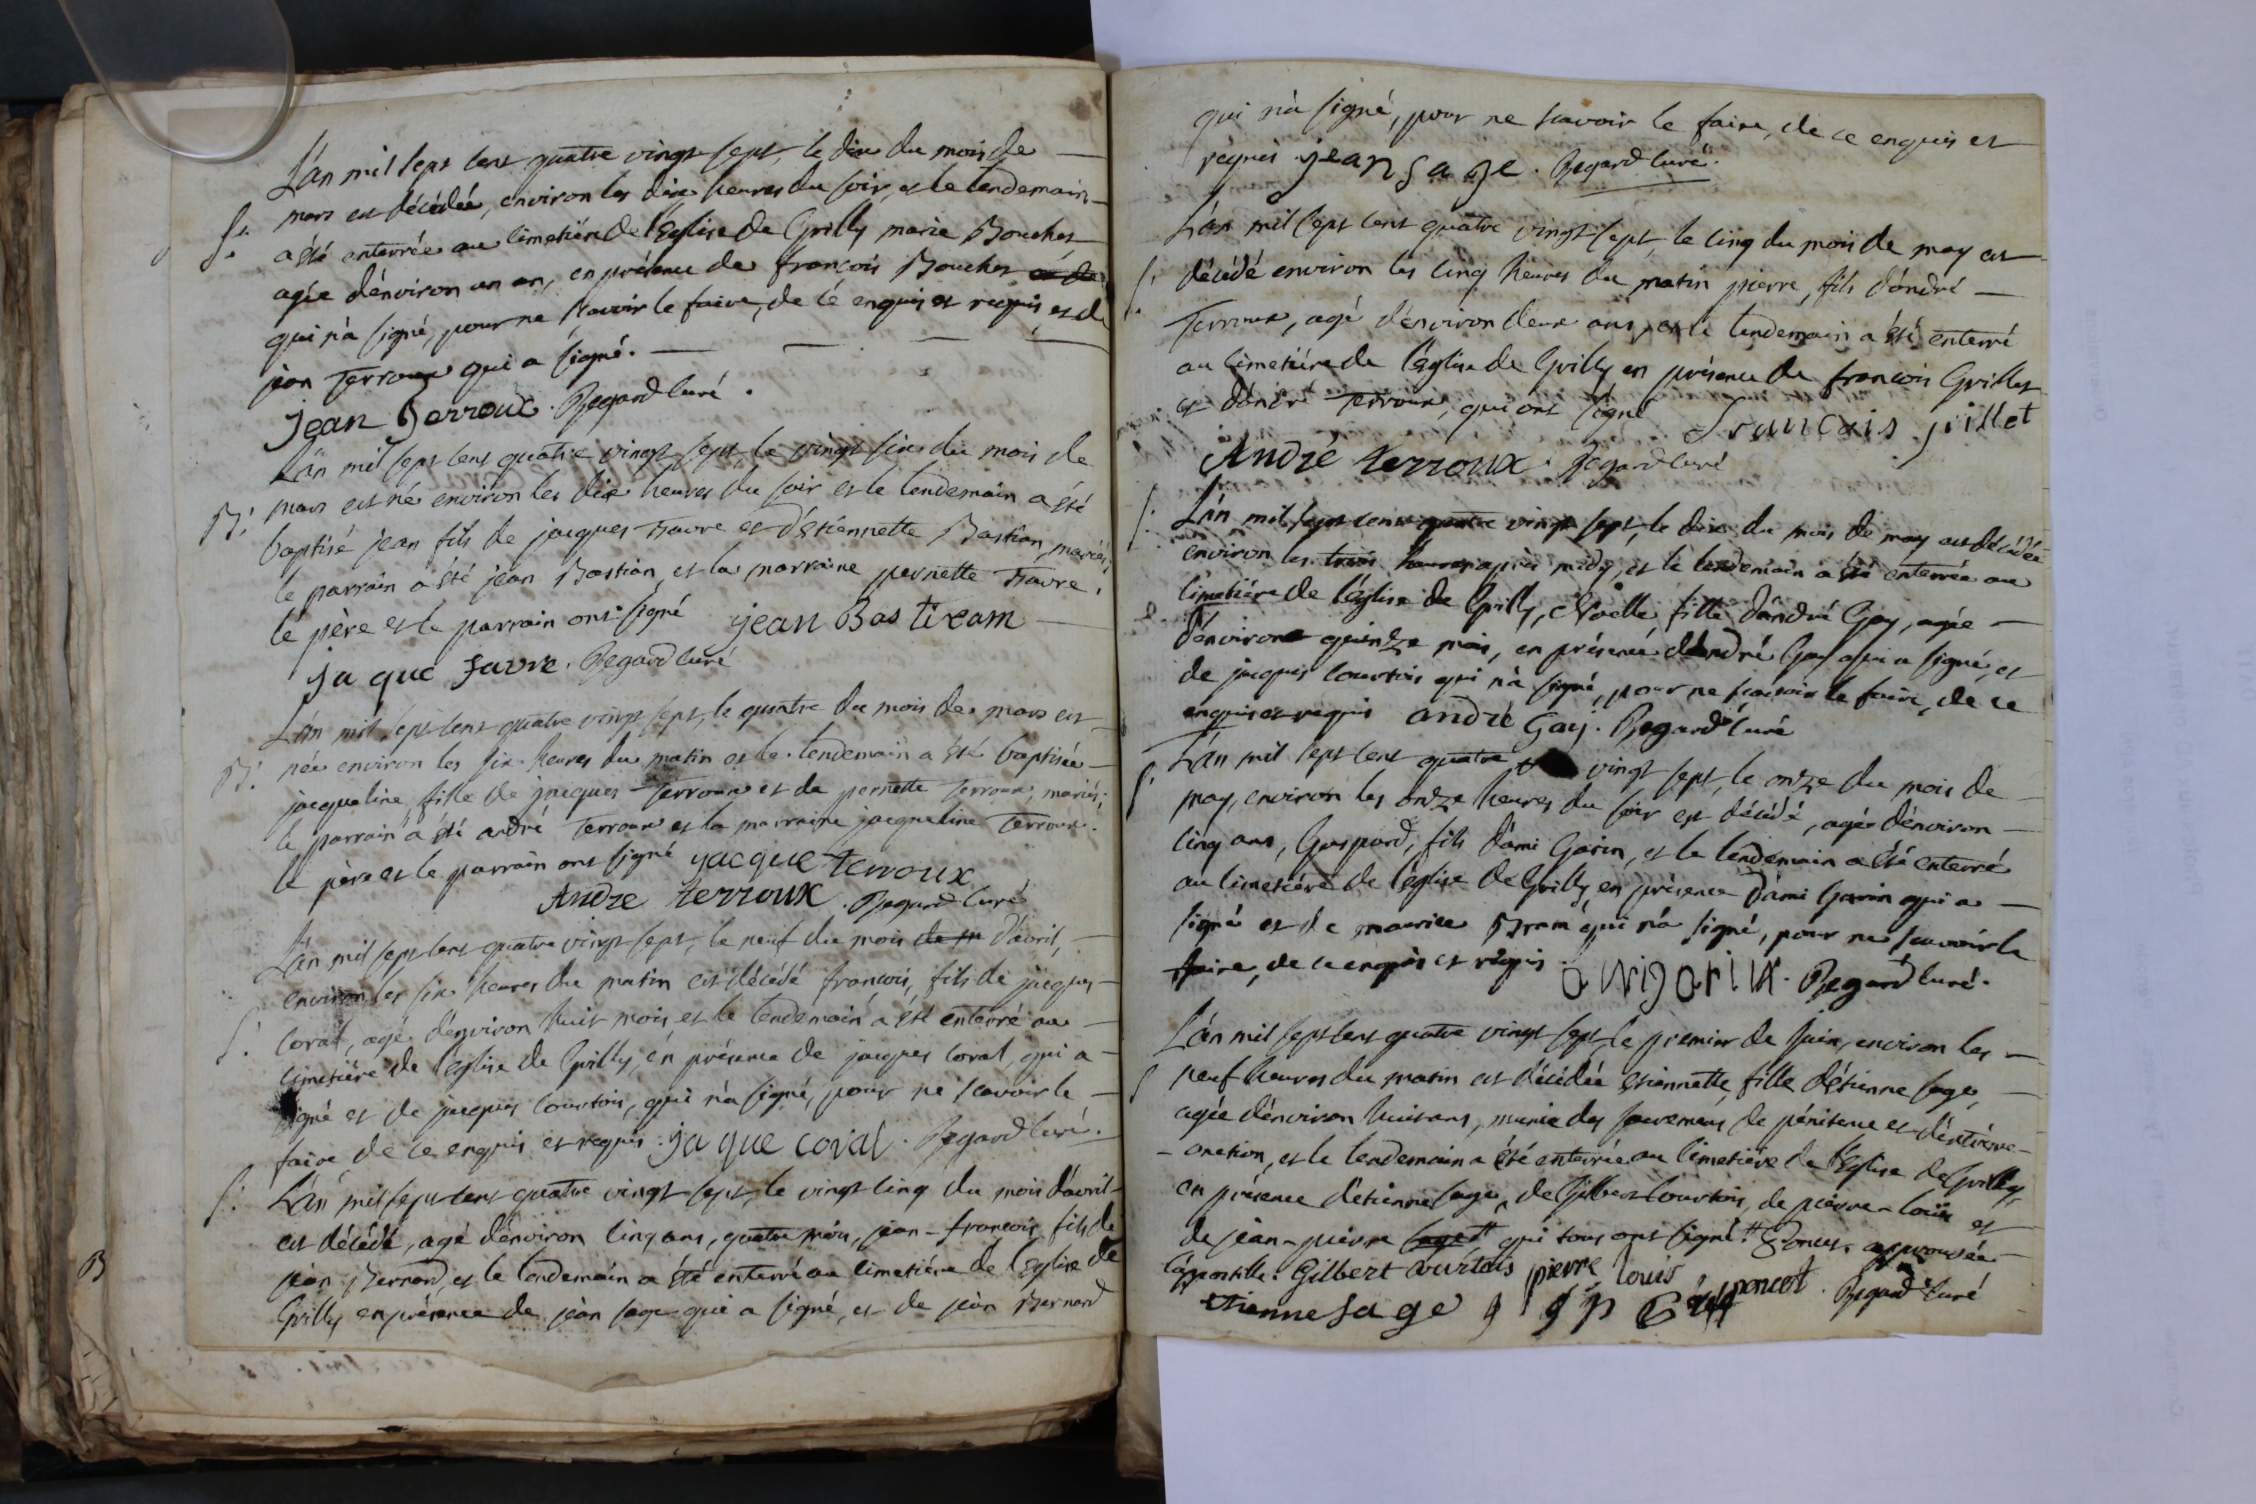 L'an mil sept cent quatre vingt sept, le dix du mois de
S. mars est décédée, environ les dix heures du soir, et le lendemain
a été enterrée au cimetière de l'Eglise de Grilly marie Bouchet
agée d'environ un an, en présence de françois Bouchet
qui n'a signé, pour ne scavoir le faire, de cé enquis et requis, et de
jean Terroux qui a signé.
Jean Terroux. Regard curé.
L'an mil sept cent quatre vingt sept, le vingt six du mois de
B. mars est né environ les dix heures du soir et le lendemain a été
baptisé jean fils de jacques Favre et d'étiennette Bastian, mariés;
le parrain a été jean Bastian, et la marraine pernette Favre.
le père et le parrain ont signé jean Bas tixam
ja que favre. Regard curé
L'an mil sept cent quatre vingt sept, le quatre du mois de mars est
B. née environ les six heures du matin et le lendemain a été baptisée
jacqueline fille de jacques Terroux et de pernette Terroux, mariés;
le parrain a été andré Terroux et la marraine jacqueline Terroux.
le père et le parrain ont signé yacque terroux
Andre terroux. Regard curé
L'an mil sept cent quatre vingt sept, le neuf du mois de m d'avril,
environ les six heures du matin est décédé francois, fils de jacques
S. Coral, agé d'environ huit mois, et le lendemain a été enterré au
cimetière de l'église de Grilly, en présence de jacques Coral, qui a
signé et de jacques Courtois, qui n'a signé, pour ne scavoir le
faire, de ce enquis et requis. ja que coral. Regard curé.
S. L'an mil sept cent quatre vingt sept, le vingt cinq du mois d'avril
est décédé, agé d'environ cinq ans, quatre mois, jean-francois, fils de
jean Bernard, et le lendemain a été enterré au cimetière de l'Eglise de
B
Grilly en présence de jean sage qui a signé, et de jean Bernard
qui n'a signé, pour ne scavoir le faire, de ce enquis et
requis jean sage. Regard curé.
L'an mil sept cent quatre vingt sept, le cinq du mois de may est
S. décédé environ les cinq heures du matin pierre, fils d'andré
Terroux, agé d'environ deux ans, et le lendemain a été enterré
au cimetière de l'église de Grilly en présence de francois Grillet
et d'andré Terroux, qui ont signé francais grillet
André terroux. Regard curé
S. L'an mil sept cent quatre vingt sept, le dix du mois de may est décédée
environ les trois heures après midy, et le lendemain a été enterrée au
cimetière de l'église de Grilly, Noelle, fille d'andré Gay, agée
d'environ quinze mois, en présence d'andré Gay qui a signé, et
de jacques Courtois qui n'a signé, pour ne scavoir le faire, de ce
enquis et requis andré Gay. Regard curé
S. L'an mil sept cent quatre vingt sept, le onze du mois de
may, environ les onze heures du soir est décédé, agé d'environ
cinq ans, Gaspard, fils d'ami Garin, et le lendemain a été enterré
au cimetière de l'église de Grilly, en présence d'ami Garin qui a
signé et de maurice qui n'a signé, pour ne scavoir le
faire, de ce enquis et requis. amigarin. Regard curé.
L'an mil sept cent quatre vingt sept, le premier de juin, environ les
S neuf heures du matin est décédée etiennette, fille d'étienne sage,
agée d'environ huit ans, munie des sacremens de pénitence et d'extrème
-onction, et le lendemain a été enterrée au cimetière de l'Eglise de Grilly,
en présence d'etienne sage, de Gilbert Courtois, de pierre-louis et
de jean-pierre sage, qui tous ont signé. # Poncet. approuvée
l'appostille. Gilbert courtois pierre louis poncet. Regard curé
etienne sage